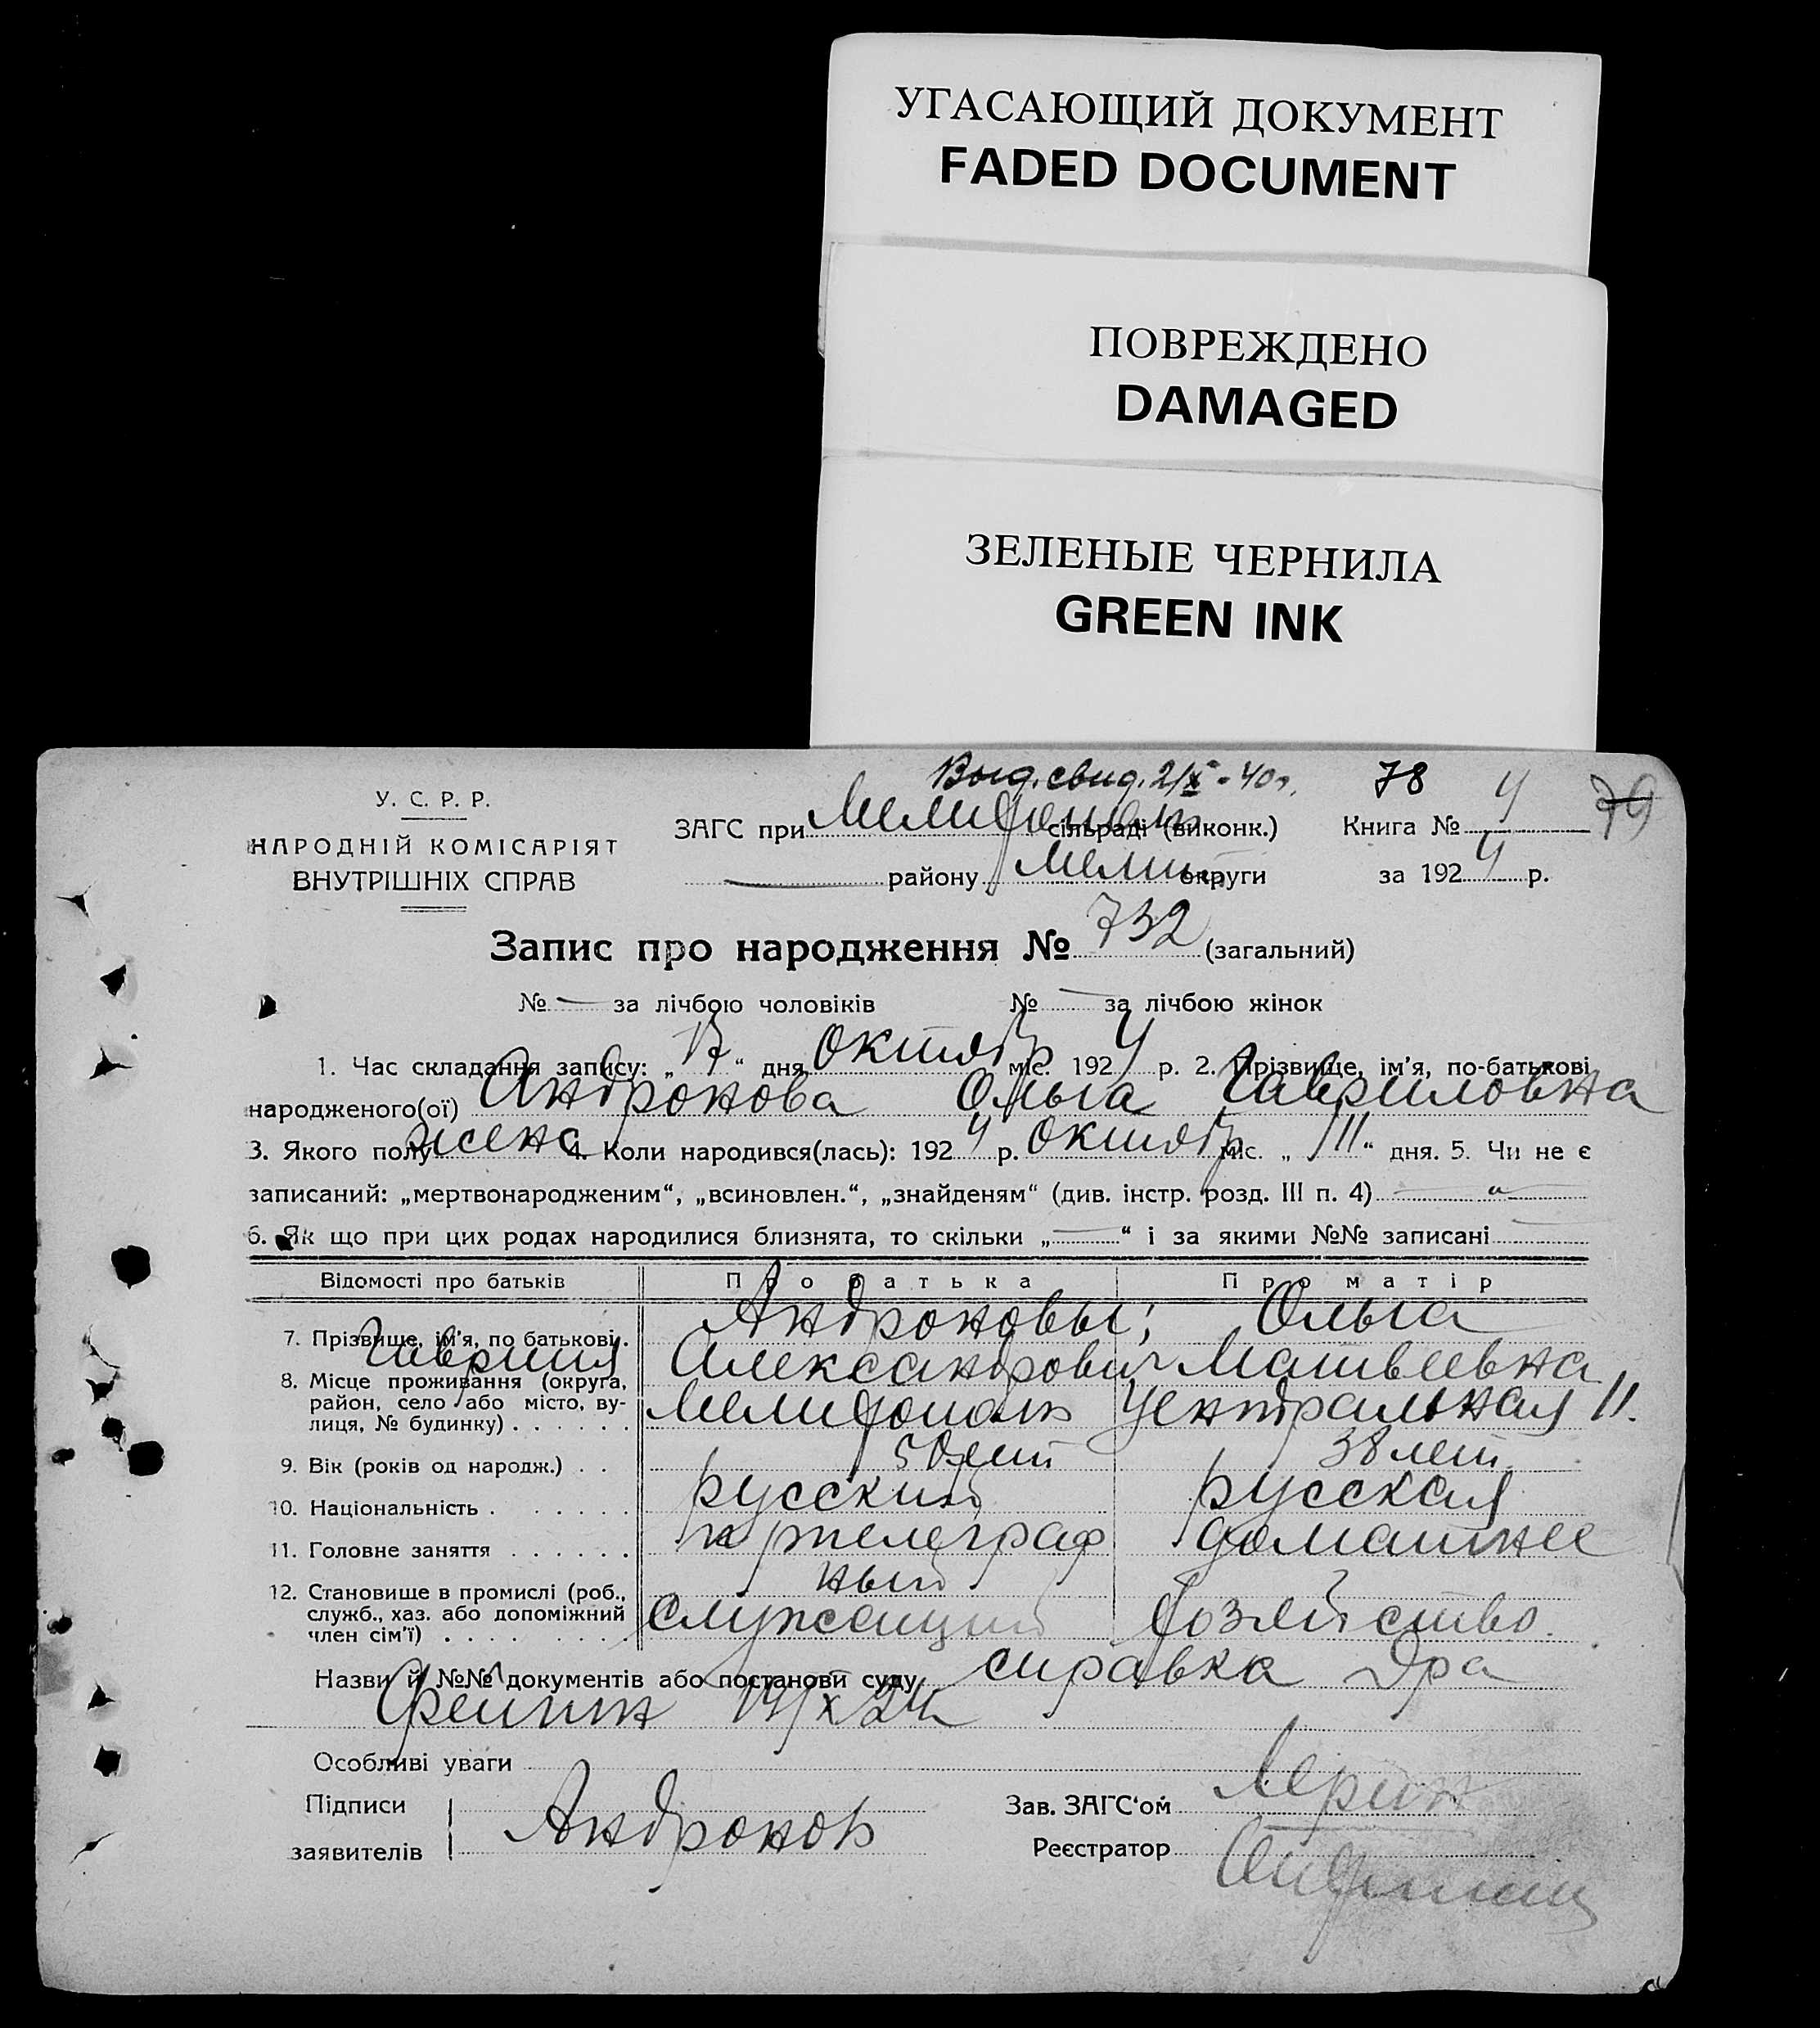 УГАСАЮЩИЙ ДОКУМЕНТ
FADED DOCUMENT
ПОВРЕЖДЕНО
DAMAGED
ЗЕЛЕНЫЕ ЧЕРНИЛА
GREEN INK
Выд. свид. 2/X - 40 г. 78 79
У. С. Р. Р.
НАРОДНІЙ КОМІСАРІЯТ
ВНУТРІШНІХ СПРАВ
ЗАГС при Мелитополь сільраді (виконк.) Книга № 4
району Мелит. округи за 1924 р.
Запис про народження № 732 (загальний)
№ — за лічбою чоловіків № — за лічбою жінок
1. Час складання запису: „17“ дня октябр міс. 1924 р. 2. Прізвище, ім'я, по-батькові
народженого(ої) Андронова Ольга Гавриловна
3. Якого полу женс 4. Коли народився(лась): 1924 р. октябр міс. „ “ дня. 5. Чи не є
записаний: „мертвонародженим“, „всиновлен.“, „знайденям“ (див. інстр. розд. III п. 4) — „ —
6. Як що при цих родах народилися близнята, то скільки „—“ і за якими №№ записані —
Відомості про батьків Про батька Про матір
7. Прізвище, ім'я, по батькові. Андроновы; Ольга
Гавриил Александрович Матвеевна
8. Місце проживання (округа, район, село або місто, вулиця, № будинку) Мелитополь Центральная 11.
9. Вік (років од народж.) 50 лет 38 лет
10. Національність русский русская
11. Головне заняття телеграф домашнее
ный
12. Становище в промислі (роб., служб., хаз. або допоміжний член сім'ї) служащий хозяйство.
Назви й №№ документів або постанови суду справка Дра
14/X 24
Особливі уваги
Підписи заявителів Андронов
Зав. ЗАГС'ом
Реєстратор